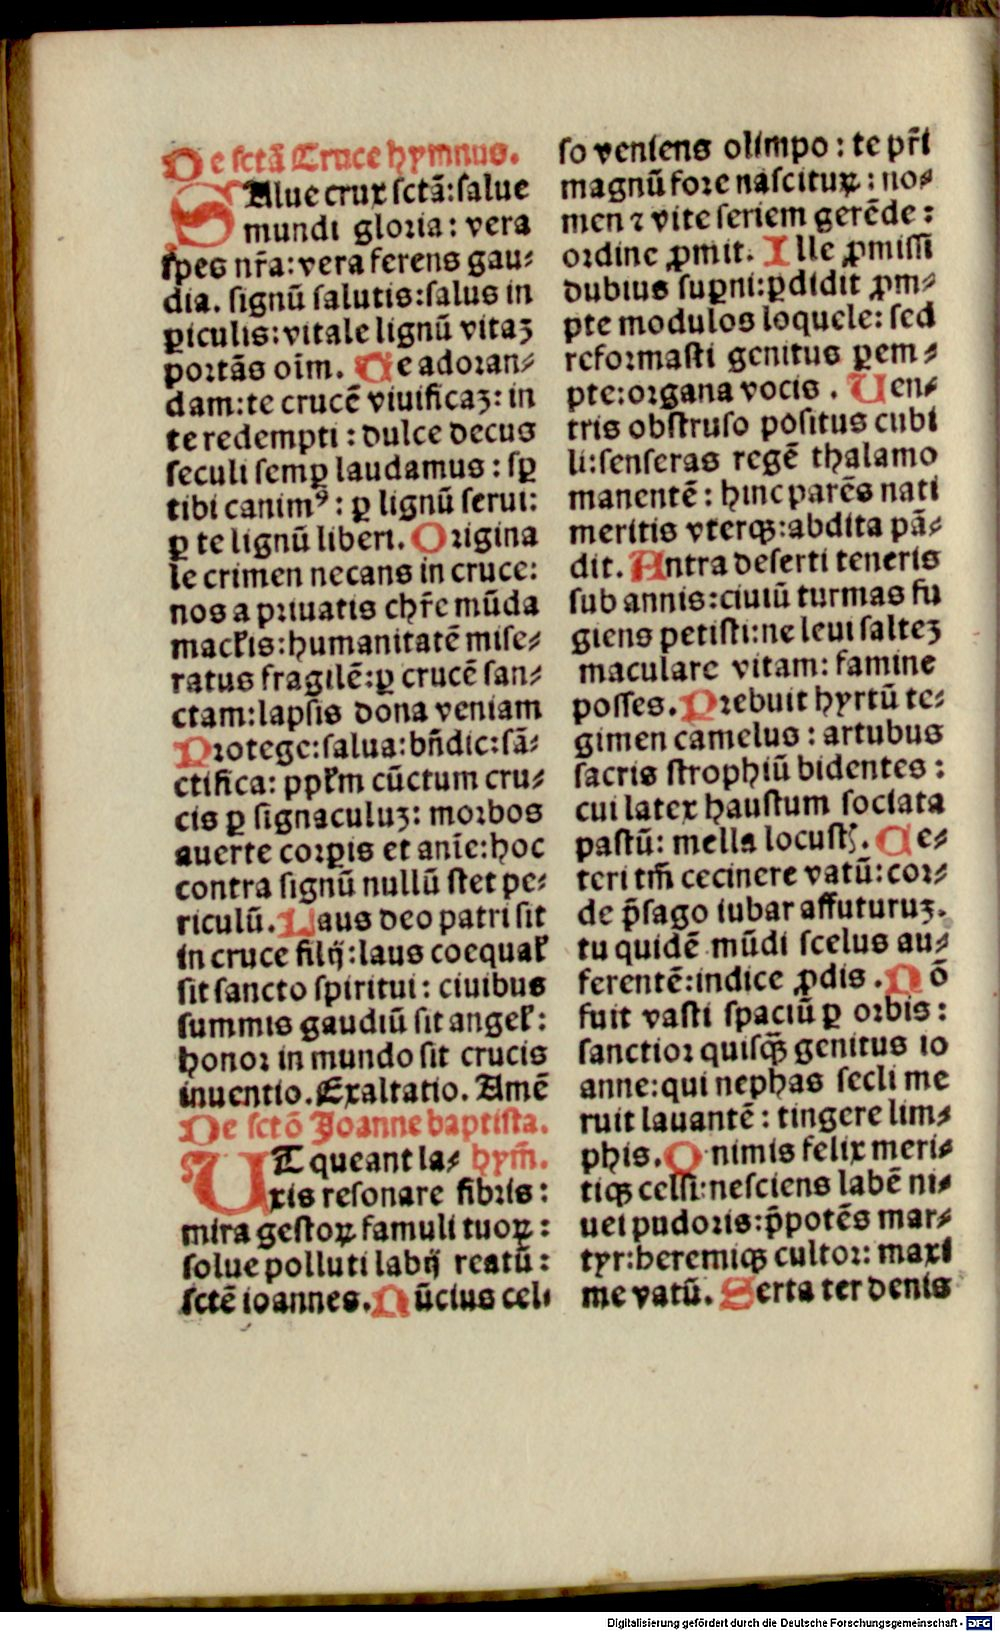 De sctā Cruce hymnus.
SAlue crux sctā: salue
mundi gloria: vera
spes nr̄a: vera ferens gau⸗
dia. signū salutis: salus in
ꝑiculis: vitale lignū vitaꝫ
portās oīm. Te adoran⸗
dam: te crucē viuificaꝫ: in
te redempti: dulce decus
seculi semꝑ laudamus: sꝑ
tibi canimꝰ: ꝑ lignū serui:
ꝑ te lignū liberi. Origina
le crimen necans in cruce:
nos a priuatis chr̄e mūda
macl̄is: humanitatē mise⸗
ratus fragilē: ꝑ crucē san⸗
ctam: lapsis dona veniam
Protege: salua: bn̄dic: sā⸗
ctifica: ppl̄m cūctum cru⸗
cis ꝑ signaculuꝫ: morbos
auerte corꝑis et anīe: hoc
contra signū nullū stet pe⸗
riculū. Laus deo patri sit
in cruce filij: laus coequal̄
sit sancto spiritui: ciuibus
summis gaudiū sit angel̄:
honor in mundo sit crucis
inuentio. Exaltatio. Amē
De sctō Joanne baptista.
UT queant la⸗ hym̄.
xis resonare fibris:
mira gestoꝝ famuli tuoꝝ:
solue polluti labij reatū:
sctē ioannes. Nūcius celi
so veniens olimpo: te pr̄i
magnū fore nascituꝝ: no⸗
men ⁊ vite seriem gerēde:
ordine ꝓmit. Ille ꝓmissi
dubius suꝑni: ꝑdidit ꝓm⸗
pte modulos loquele: sed
reformasti genitus ꝑem⸗
pte: organa vocis. Uen⸗
tris obstruso positus cubi
li: senseras regē thalamo
manentē: hinc parēs nati
meritis vterqꝫ: abdita pā⸗
dit. Antra deserti teneris
sub annis: ciuiū turmas fu
giens petisti: ne leui salteꝫ
maculare vitam: famine
posses. Prebuit hyrtū te⸗
gimen camelus: artubus
sacris strophiū bidentes:
cui latex haustum sociata
pastū: mella locustꝭ. Ce⸗
teri tm̄ cecinere vatū: cor⸗
de p̄sago iubar affuturuꝫ.
tu quidē mūdi scelus au⸗
ferentē: indice ꝓdis. Nō
fuit vasti spaciū ꝑ orbis:
sanctior quisqꝫ̄ genitus io
anne: qui nephas secli me
ruit lauantē: tingere lim⸗
phis. O nimis felix meri⸗
tiqꝫ celsi: nesciens labē ni⸗
uei pudoris: p̄potēs mar⸗
tyr: heremiqꝫ cultor: maxi
me vatū. Serta ter denis
Digitalisierung gefördert durch die Deutsche Forschungsgemeinschaft - DFG